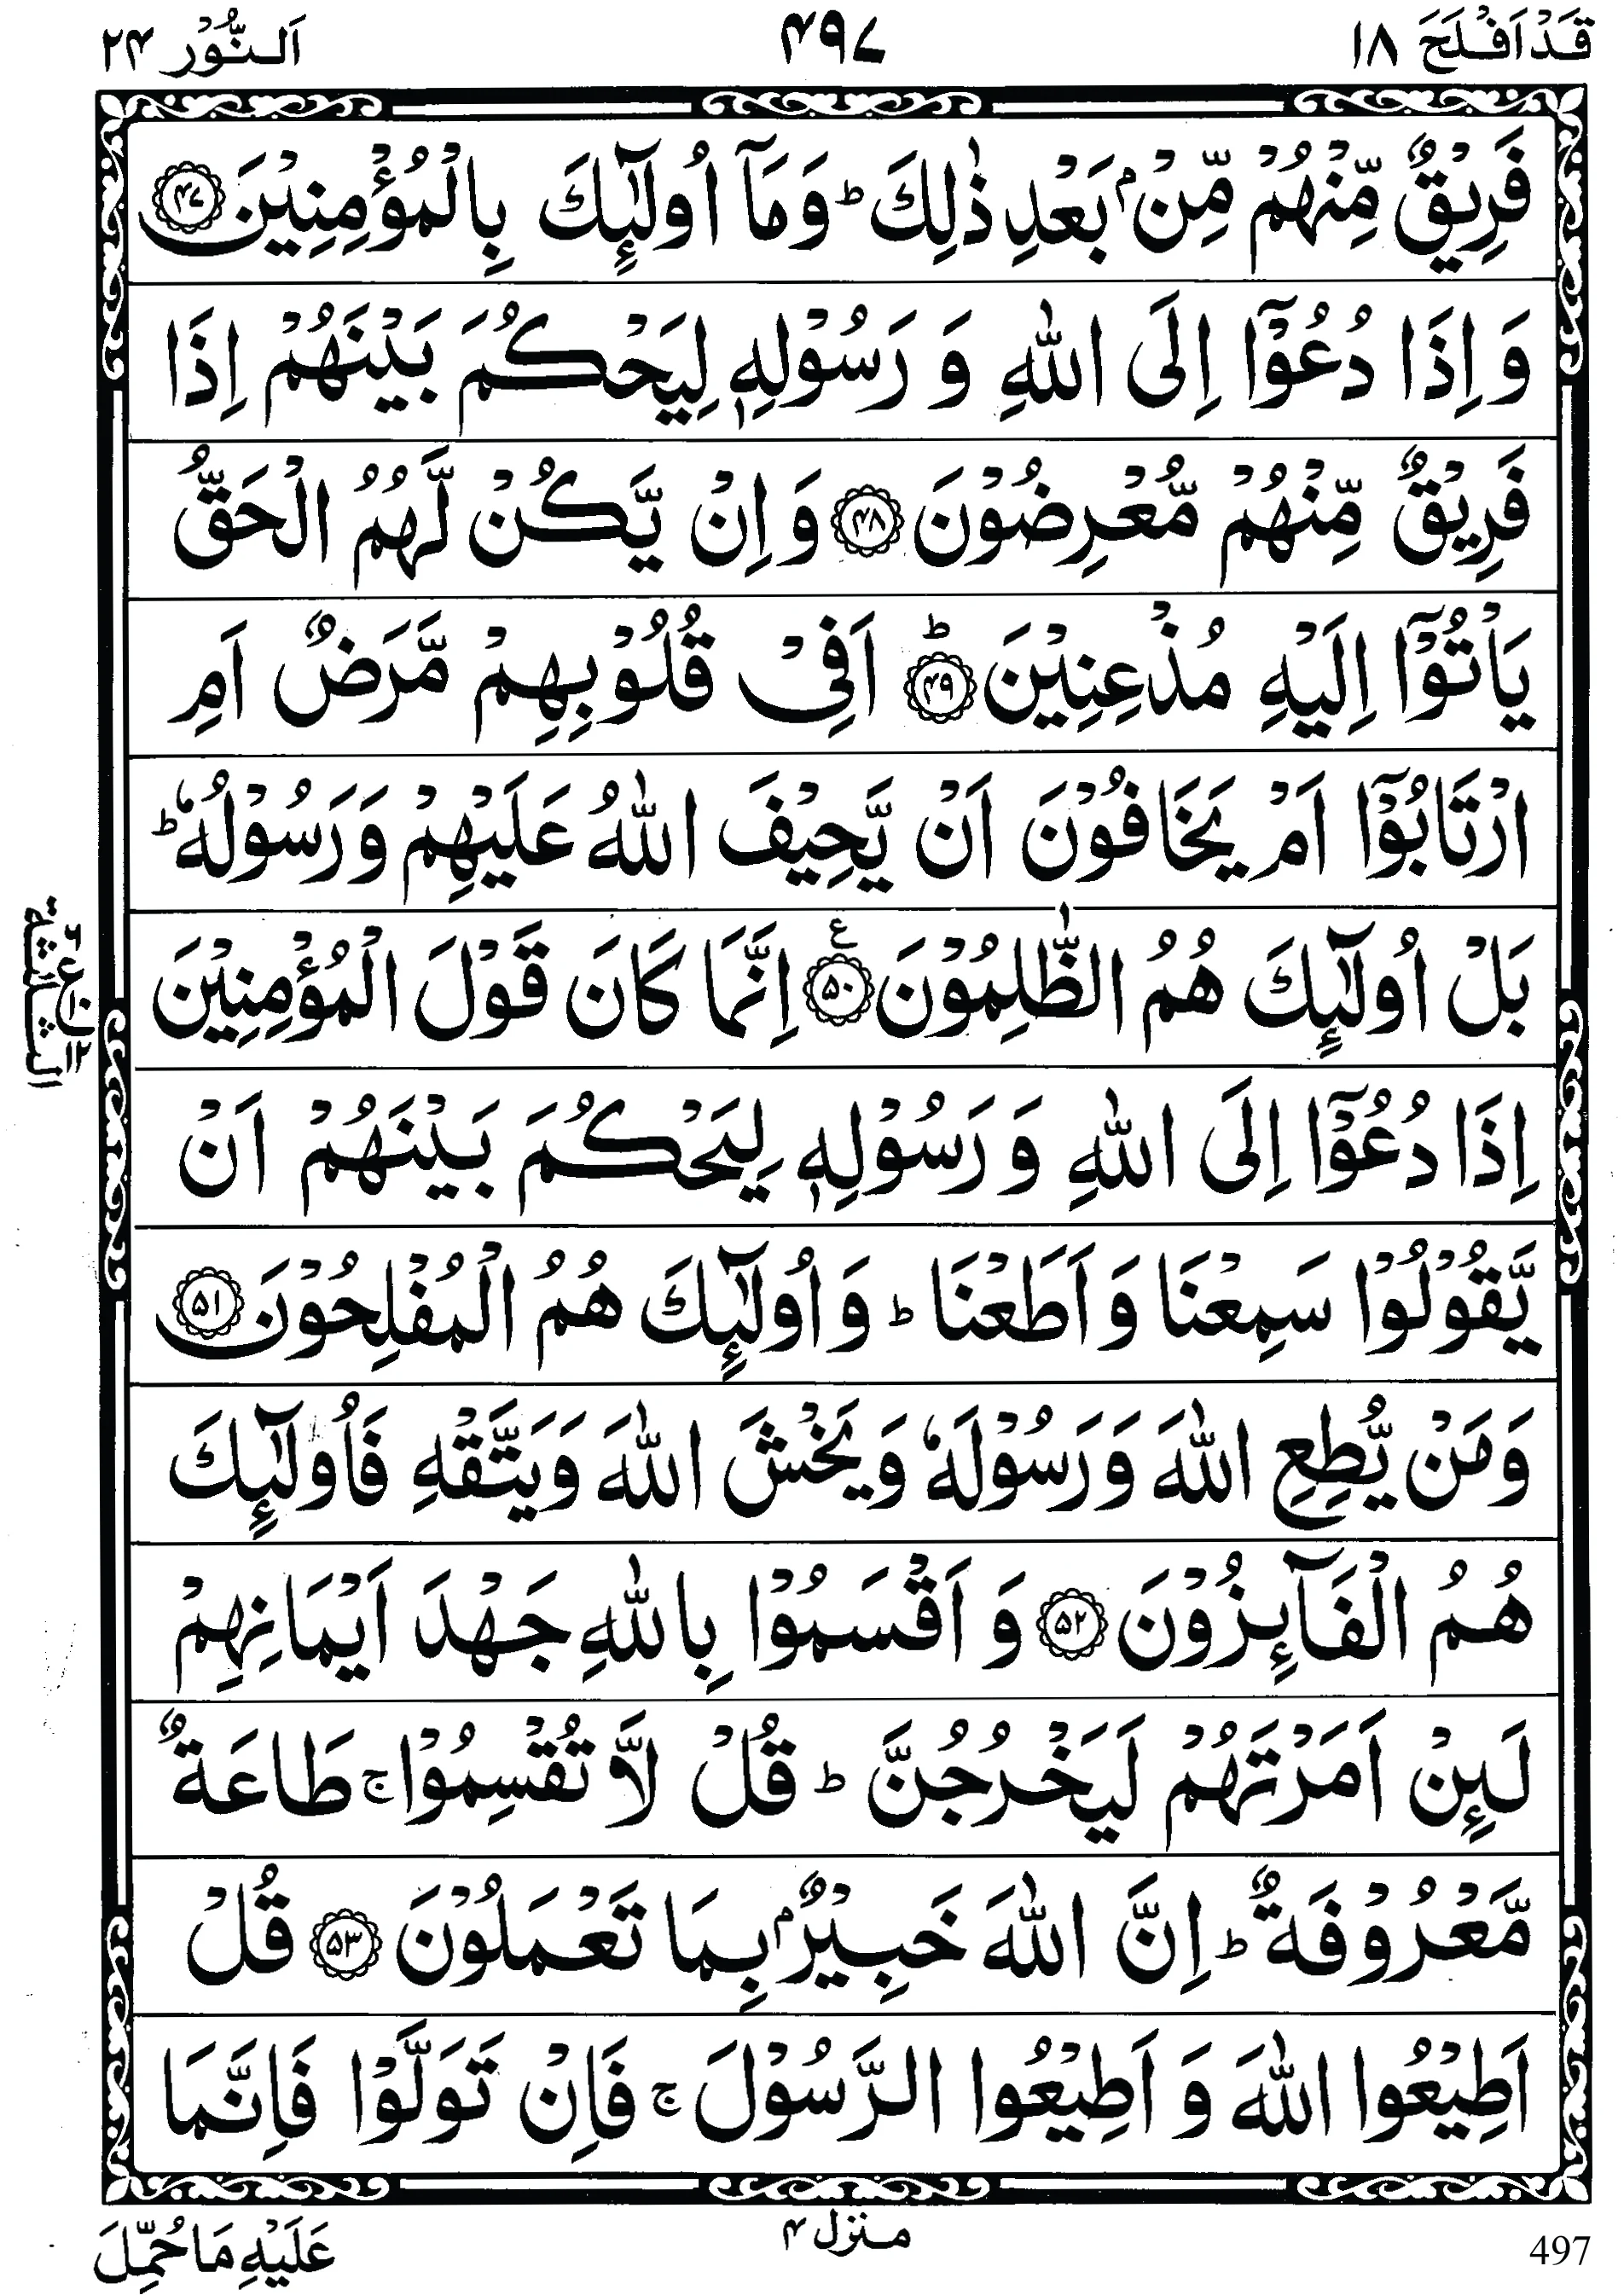 قَدْ اَفْلَحَ ١٨
۴۹۷
اَلنُّوْر ٢۴
فَرِيْقٌ مِّنْهُمْ مِّنْۢ بَعْدِ ذٰلِكَ ؕ وَمَاۤ اُولٰٓئِكَ بِالْمُؤْمِنِيْنَ ﴿۴۷﴾
وَ اِذَا دُعُوْۤا اِلَى اللّٰهِ وَ رَسُوْلِهٖ لِيَحْكُمَ بَيْنَهُمْ اِذَا
فَرِيْقٌ مِّنْهُمْ مُّعْرِضُوْنَ ﴿۴۸﴾ وَ اِنْ يَّكُنْ لَّهُمُ الْحَقُّ
يَاْتُوْۤا اِلَيْهِ مُذْعِنِيْنَ ؕ ﴿۴۹﴾ اَفِىْ قُلُوْبِهِمْ مَّرَضٌ اَمِ
ارْتَابُوْۤا اَمْ يَخَافُوْنَ اَنْ يَّحِيْفَ اللّٰهُ عَلَيْهِمْ وَرَسُوْلُهٗ ؕ
بَلْ اُولٰٓئِكَ هُمُ الظّٰلِمُوْنَ ﴿۵۰﴾ ع اِنَّمَا كَانَ قَوْلَ الْمُؤْمِنِيْنَ
اِذَا دُعُوْۤا اِلَى اللّٰهِ وَ رَسُوْلِهٖ لِيَحْكُمَ بَيْنَهُمْ اَنْ
يَّقُوْلُوْا سَمِعْنَا وَ اَطَعْنَا ؕ وَ اُولٰٓئِكَ هُمُ الْمُفْلِحُوْنَ ﴿۵۱﴾
وَمَنْ يُّطِعِ اللّٰهَ وَ رَسُوْلَهٗ وَ يَخْشَ اللّٰهَ وَ يَتَّقْهِ فَاُولٰٓئِكَ
هُمُ الْفَآئِزُوْنَ ﴿۵۲﴾ وَ اَقْسَمُوْا بِاللّٰهِ جَهْدَ اَيْمَانِهِمْ
لَئِنْ اَمَرْتَهُمْ لَيَخْرُجُنَّ ؕ قُلْ لَّا تُقْسِمُوْا ۚ طَاعَةٌ
مَّعْرُوْفَةٌ ؕ اِنَّ اللّٰهَ خَبِيْرٌۢ بِمَا تَعْمَلُوْنَ ﴿۵۳﴾ قُلْ
اَطِيْعُوا اللّٰهَ وَ اَطِيْعُوا الرَّسُوْلَ ۚ فَاِنْ تَوَلَّوْا فَاِنَّمَا
عَلَيْهِ مَا حُمِّلَ
منزل ۴
497